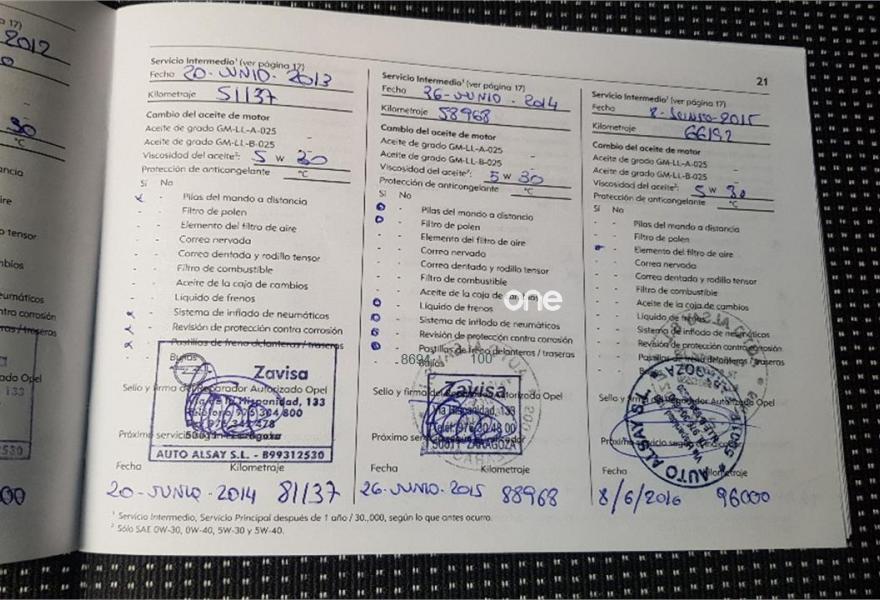 a 17)
2012
30
°C
ancia
ire
o tensor
mbios
eumáticos
ntra corrosión
ras/traseras
ado Opel
133
530
000
21
Servicio Intermedio¹ (ver página 17)
Fecho 20-JUNIO-2013
Kilometraje 51137
Cambio del aceite de motor
Aceite de grado GM-LL-A-025 -
Aceite de grado GM-LL-B-025 -
Viscosidad del aceite²: 5 w 30
Protección de anticongelante °C
Sí No
Pilas del mando a distancia
Filtro de polen
Elemento del filtro de aire
Correa nervada
Correa dentada y rodillo tensor
Filtro de combustible
Aceite de la caja de cambios
Líquido de frenos
Sistema de inflado de neumáticos
Revisión de protección contra corrosión
Pastillas de freno delanteras / traseras
Bujías
Sello y firma del Reparador Autorizado Opel
Zavisa
Vía de la Hispanidad, 133
Teléfono 976 304 800
AUTO ALSAY S.L. - B99312530
Fecha Kilometraje
20-JUNIO-2014 81137
Servicio Intermedio¹ (ver página 17)
Fecha 26-JUNIO-2014
Kilometraje 58968
Cambio del aceite de motor
Aceite de grado GM-LL-A-025 -
Aceite de grado GM-LL-B-025 -
Viscosidad del aceite²: 5 w 30
Protección de anticongelante °C
Sí No
Pilas del mando a distancia
Filtro de polen
Elemento del filtro de aire
Correa nervada
Correa dentada y rodillo tensor
Filtro de combustible
Aceite de la caja de cambios
Líquido de frenos
Sistema de inflado de neumáticos
Revisión de protección contra corrosión
Pastillas de freno delanteras / traseras
Bujías
8694 100
Zavisa
Vía Hispanidad, 133
Telef. 976 30 48 00
50011 ZARAGOZA
Fecha Kilometraje
26-JUNIO-2015 88968
Servicio Intermedio¹ (ver página 17)
Fecha 8-JUNIO-2015
Kilometraje 66192
Cambio del aceite de motor
Aceite de grado GM-LL-A-025 -
Aceite de grado GM-LL-B-025 -
Viscosidad del aceite²: 5 w 30
Protección de anticongelante °C
Sí No
Pilas del mando a distancia
Filtro de polen
Elemento del filtro de aire
Correa nervada
Correa dentada y rodillo tensor
Filtro de combustible
Aceite de la caja de cambios
Líquido de frenos
Sistema de inflado de neumáticos
Revisión de protección contra corrosión
Pastillas de freno delanteras / traseras
Sello y firma del Reparador Autorizado Opel
AUTO ALSAY S.
Fecha Kilometraje
8/6/2016 96000
¹ Servicio Intermedio, Servicio Principal después de 1 año / 30.,000, según lo que antes ocurra.
² Sólo SAE 0W-30, 0W-40, 5W-30 y 5W-40.
one